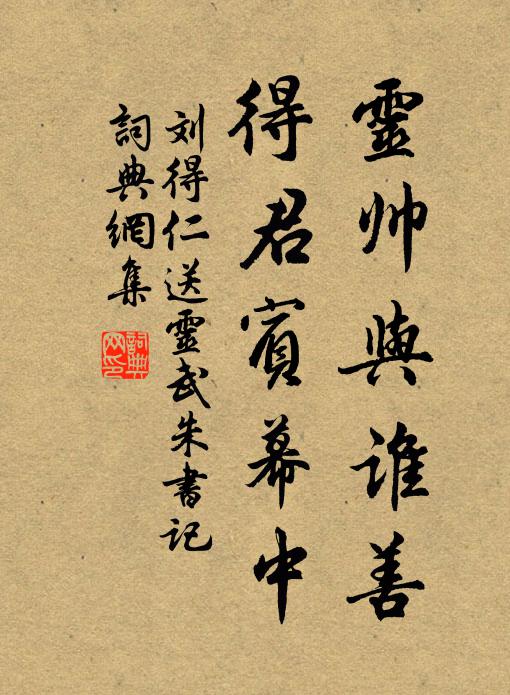 靈帅與誰善
得君賓幕中
刘得仁送靈武朱書记
詞典網集
詞典網印